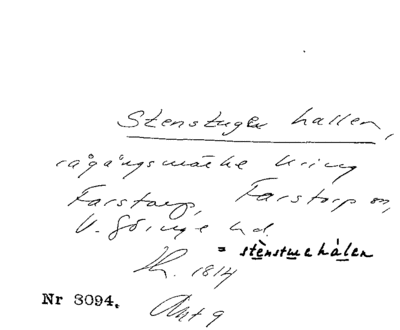 Stenstuge hallen,
rågångsmärke kring
Farstorp, Farstorp sn,
V. Göinge hd.
= stènstuehàlen
Kh. 1814
Nr 3094.